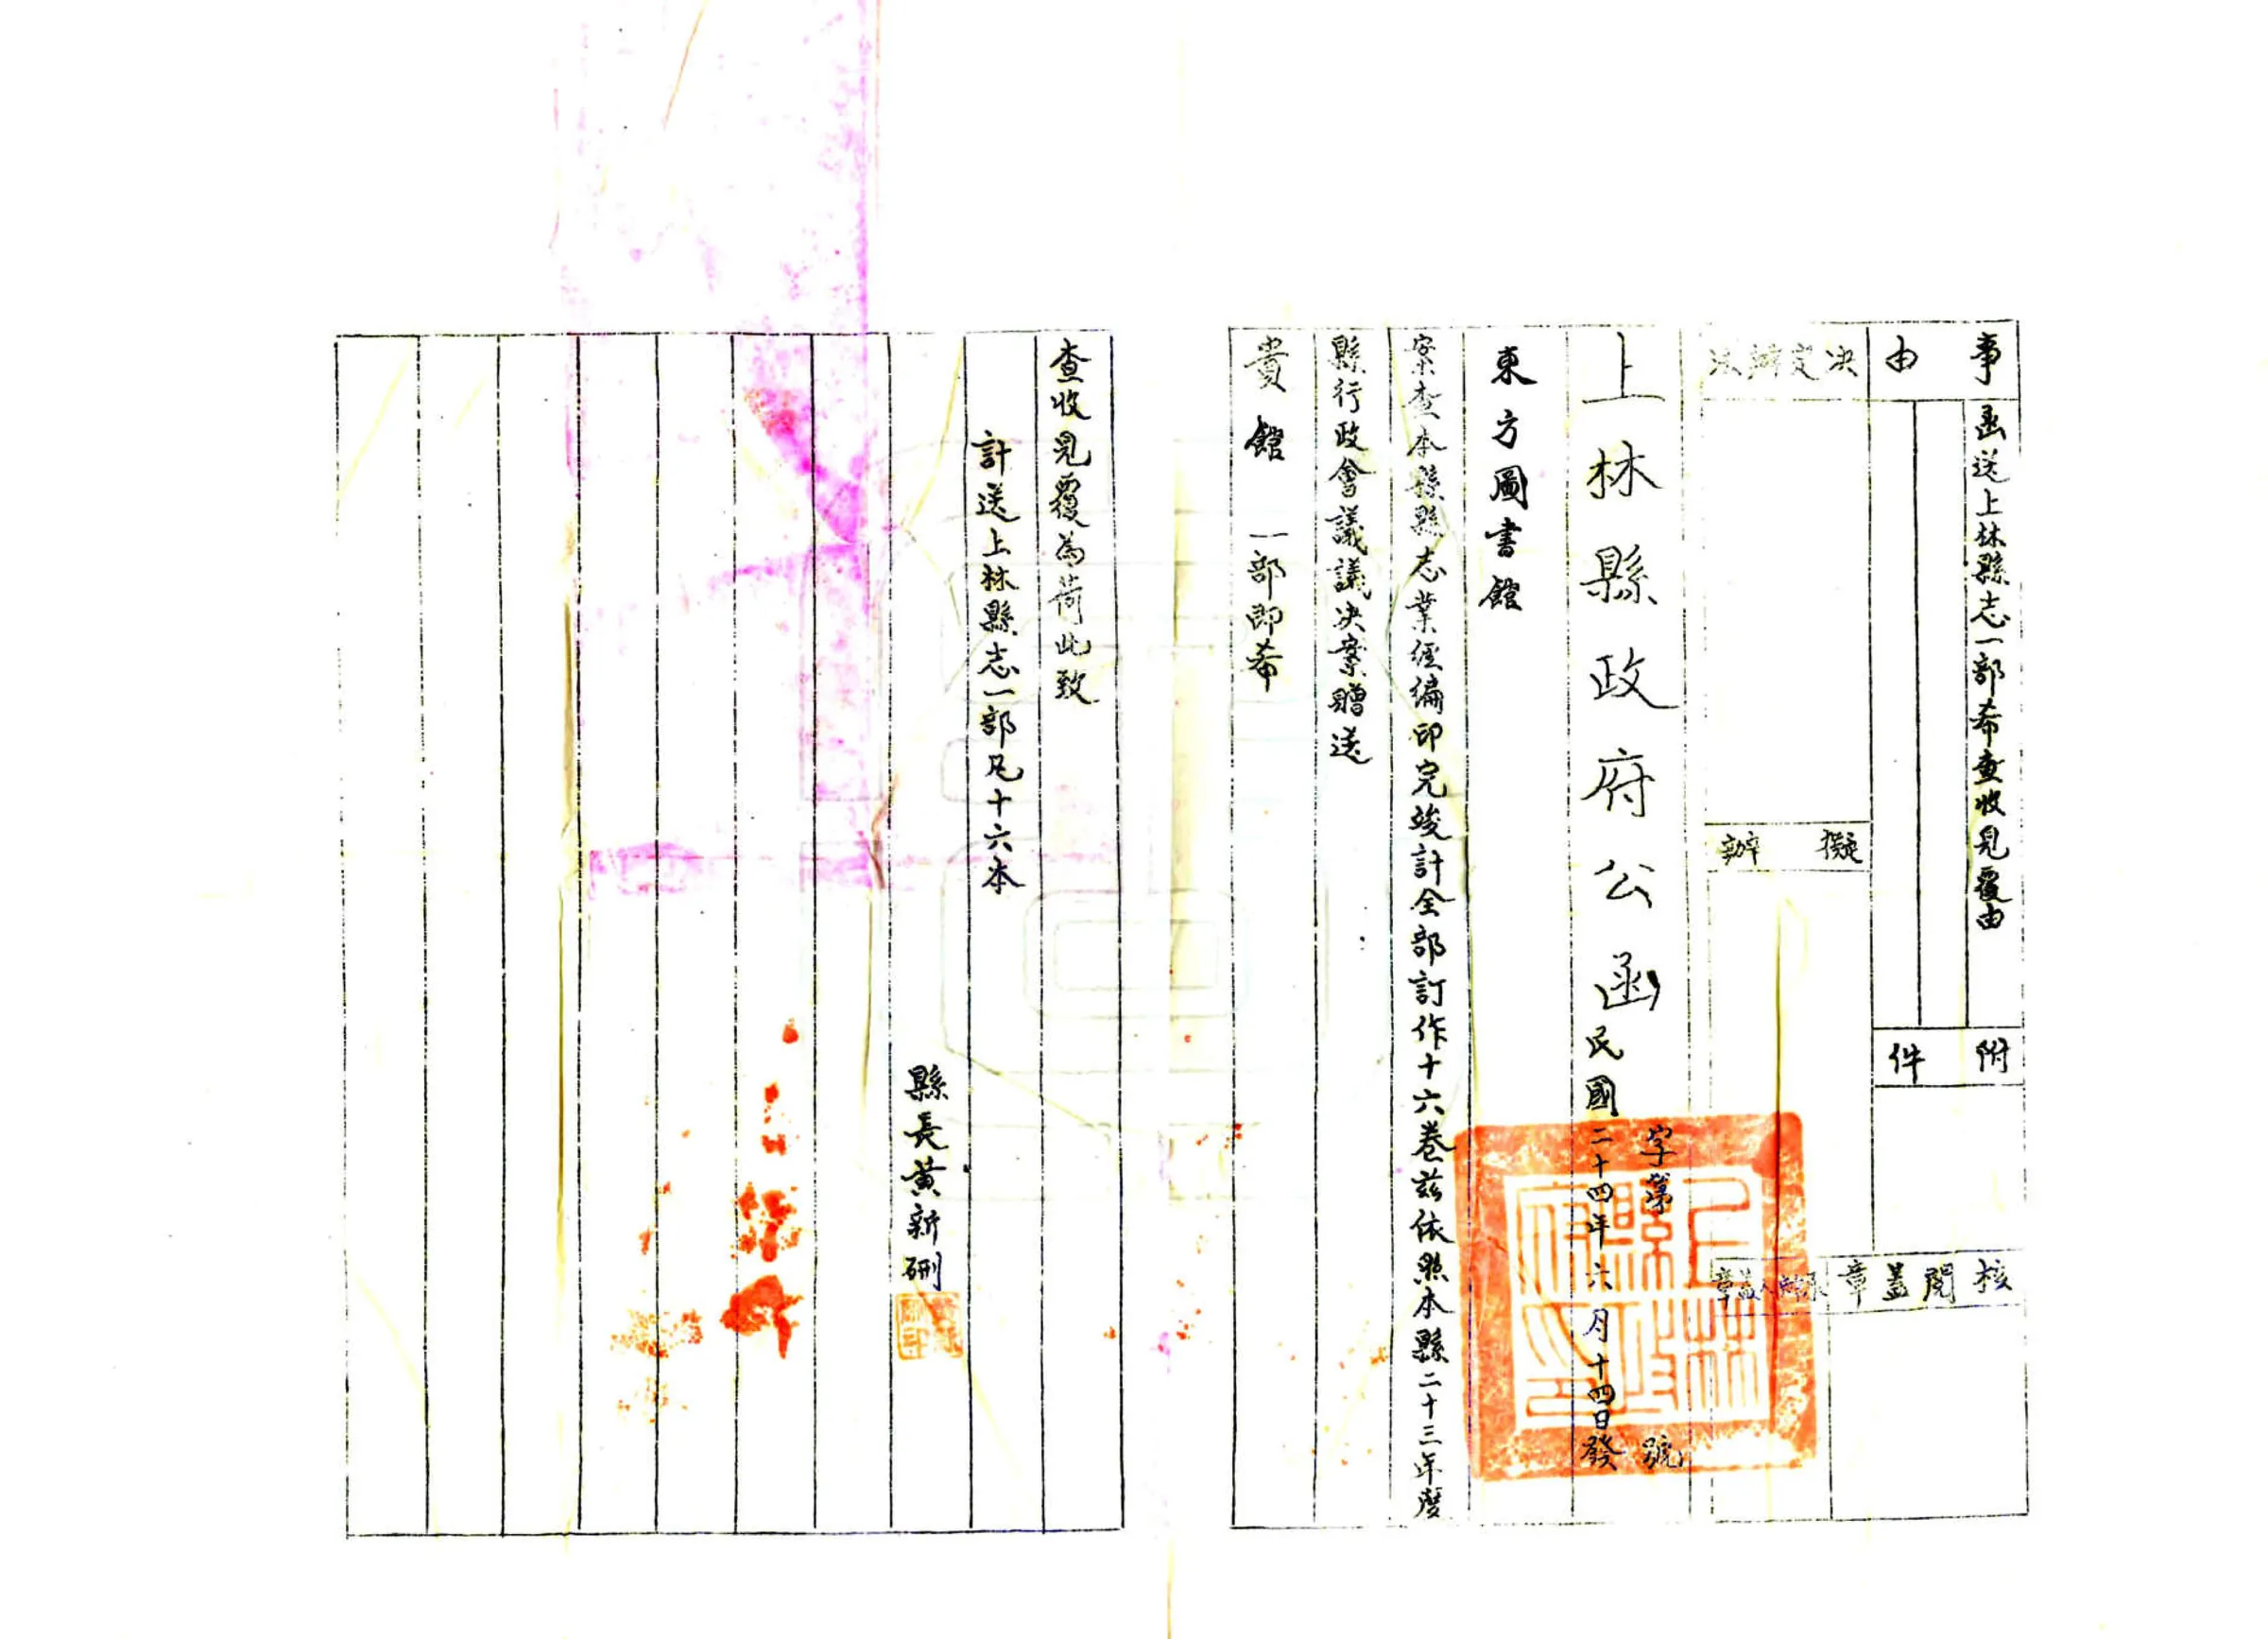 事由
函送上林縣志一部希查收見覆由
附件
決定辦法
擬辦
核閱蓋章
上林縣政府公函
字第 號
民國二十四年六月十四日發
東方圖書館
案查本縣縣志業經編印完竣計全部訂作十六卷茲依照本縣二十三年度
縣行政會議議決案贈送
貴館 一部即希
查收見覆為荷此致
計送上林縣志一部凡十六本
縣長黃新硎
上林縣政府印